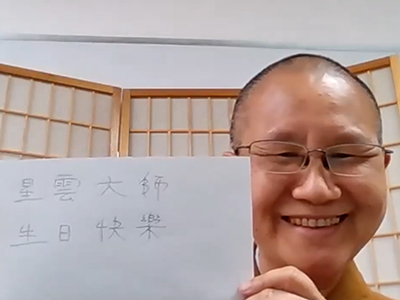 星雲大師
生日快樂